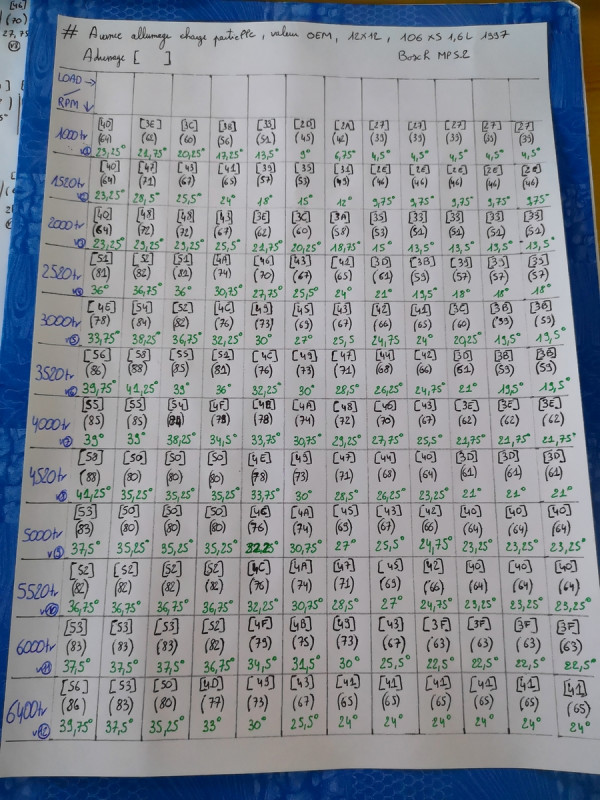 # Avance allumage charge partielle, valeur OEM, 12x12, 106 XS 1,6L 1997
Adressage [ ] Bosch MP5.2
LOAD →
RPM ↓
[40] [3E] [3C] [38] [33] [2D] [2A] [27] [27] [27] [27] [27]
1000tr (64) (62) (60) (56) (51) (45) (42) (39) (39) (39) (39) (39)
23,25° 21,75° 20,25° 17,25° 13,5° 9° 6,75° 4,5° 4,5° 4,5° 4,5° 4,5°
[40] [47] [43] [41] [39] [35] [31] [2E] [2E] [2E] [2E] [2E]
1520tr (64) (71) (67) (65) (57) (53) (49) (46) (46) (46) (46) (46)
23,25° 28,5° 25,5° 24° 18° 15° 12° 9,75° 9,75° 9,75° 9,75° 9,75°
[40] [48] [48] [43] [3E] [3C] [3A] [35] [33] [33] [33] [33]
2000tr (64) (72) (72) (67) (62) (60) (58) (53) (51) (51) (51) (51)
23,25° 29,25° 29,25° 25,5° 21,75° 20,25° 18,75° 15° 13,5° 13,5° 13,5° 13,5°
[51] [52] [51] [4A] [46] [43] [41] [3D] [3B] [39] [39] [39]
2520tr (81) (82) (81) (74) (70) (67) (65) (61) (59) (57) (57) (57)
36° 36,75° 36° 30,75° 27,75° 25,5° 24° 21° 19,5° 18° 18° 18°
[4E] [54] [52] [4C] [49] [45] [43] [42] [41] [3C] [3B] [3B]
3000tr (78) (84) (82) (76) (73) (69) (67) (66) (65) (60) (59) (59)
v5 33,75° 38,25° 36,75° 32,25° 30° 27° 25,5 24,75 24° 20,25 19,5° 19,5°
[56] [58] [55] [51] [4C] [49] [47] [44] [42] [3D] [3B] [3B]
3520tr (86) (88) (85) (81) (76) (73) (71) (68) (66) (61) (59) (59)
39,75° 41,25° 39° 36° 32,25° 30° 28,5° 26,25° 24,75° 21° 19,5° 19,5°
[55] [55] [54] [4F] [4E] [4A] [48] [46] [43] [3E] [3E] [3E]
4000tr (85) (85) (84) (79) (78) (74) (72) (70) (67) (62) (62) (62)
v7 39° 39° 38,25° 34,5° 33,75° 30,75° 29,25° 27,75° 25,5° 21,75° 21,75° 21,75°
[58] [50] [50] [50] [4E] [49] [47] [44] [40] [3D] [3D] [3D]
4520tr (88) (80) (80) (80) (78) (73) (71) (68) (64) (61) (61) (61)
v8 41,25° 35,25° 35,25° 35,25° 33,75° 30° 28,5° 26,25° 23,25° 21° 21° 21°
[53] [50] [50] [50] [4C] [4A] [45] [43] [42] [40] [40] [40]
5000tr (83) (80) (80) (80) (76) (74) (69) (67) (66) (64) (64) (64)
v9 37,5° 35,25° 35,25° 35,25° 32,25° 30,75° 27° 25,5° 24,75° 23,25° 23,25° 23,25°
[52] [52] [52] [52] [4C] [4A] [47] [45] [42] [40] [40] [40]
5520tr (82) (82) (82) (82) (76) (74) (71) (69) (66) (64) (64) (64)
v10 36,75° 36,75° 36,75° 36,75° 32,25° 30,75° 28,5° 27° 24,75° 23,25° 23,25° 23,25°
[53] [53] [53] [52] [4F] [4B] [49] [43] [3F] [3F] [3F] [3F]
6000tr (83) (83) (83) (82) (79) (75) (73) (67) (63) (63) (63) (63)
v11 37,5° 37,5° 37,5° 36,75° 34,5° 31,5° 30° 25,5° 22,5° 22,5° 22,5° 22,5°
[56] [53] [50] [4D] [49] [43] [41] [41] [41] [41] [41] [41]
6400tr (86) (83) (80) (77) (73) (67) (65) (65) (65) (65) (65) (65)
v12 39,75° 37,5° 35,25° 33° 30° 25,5° 24° 24° 24° 24° 24° 24°